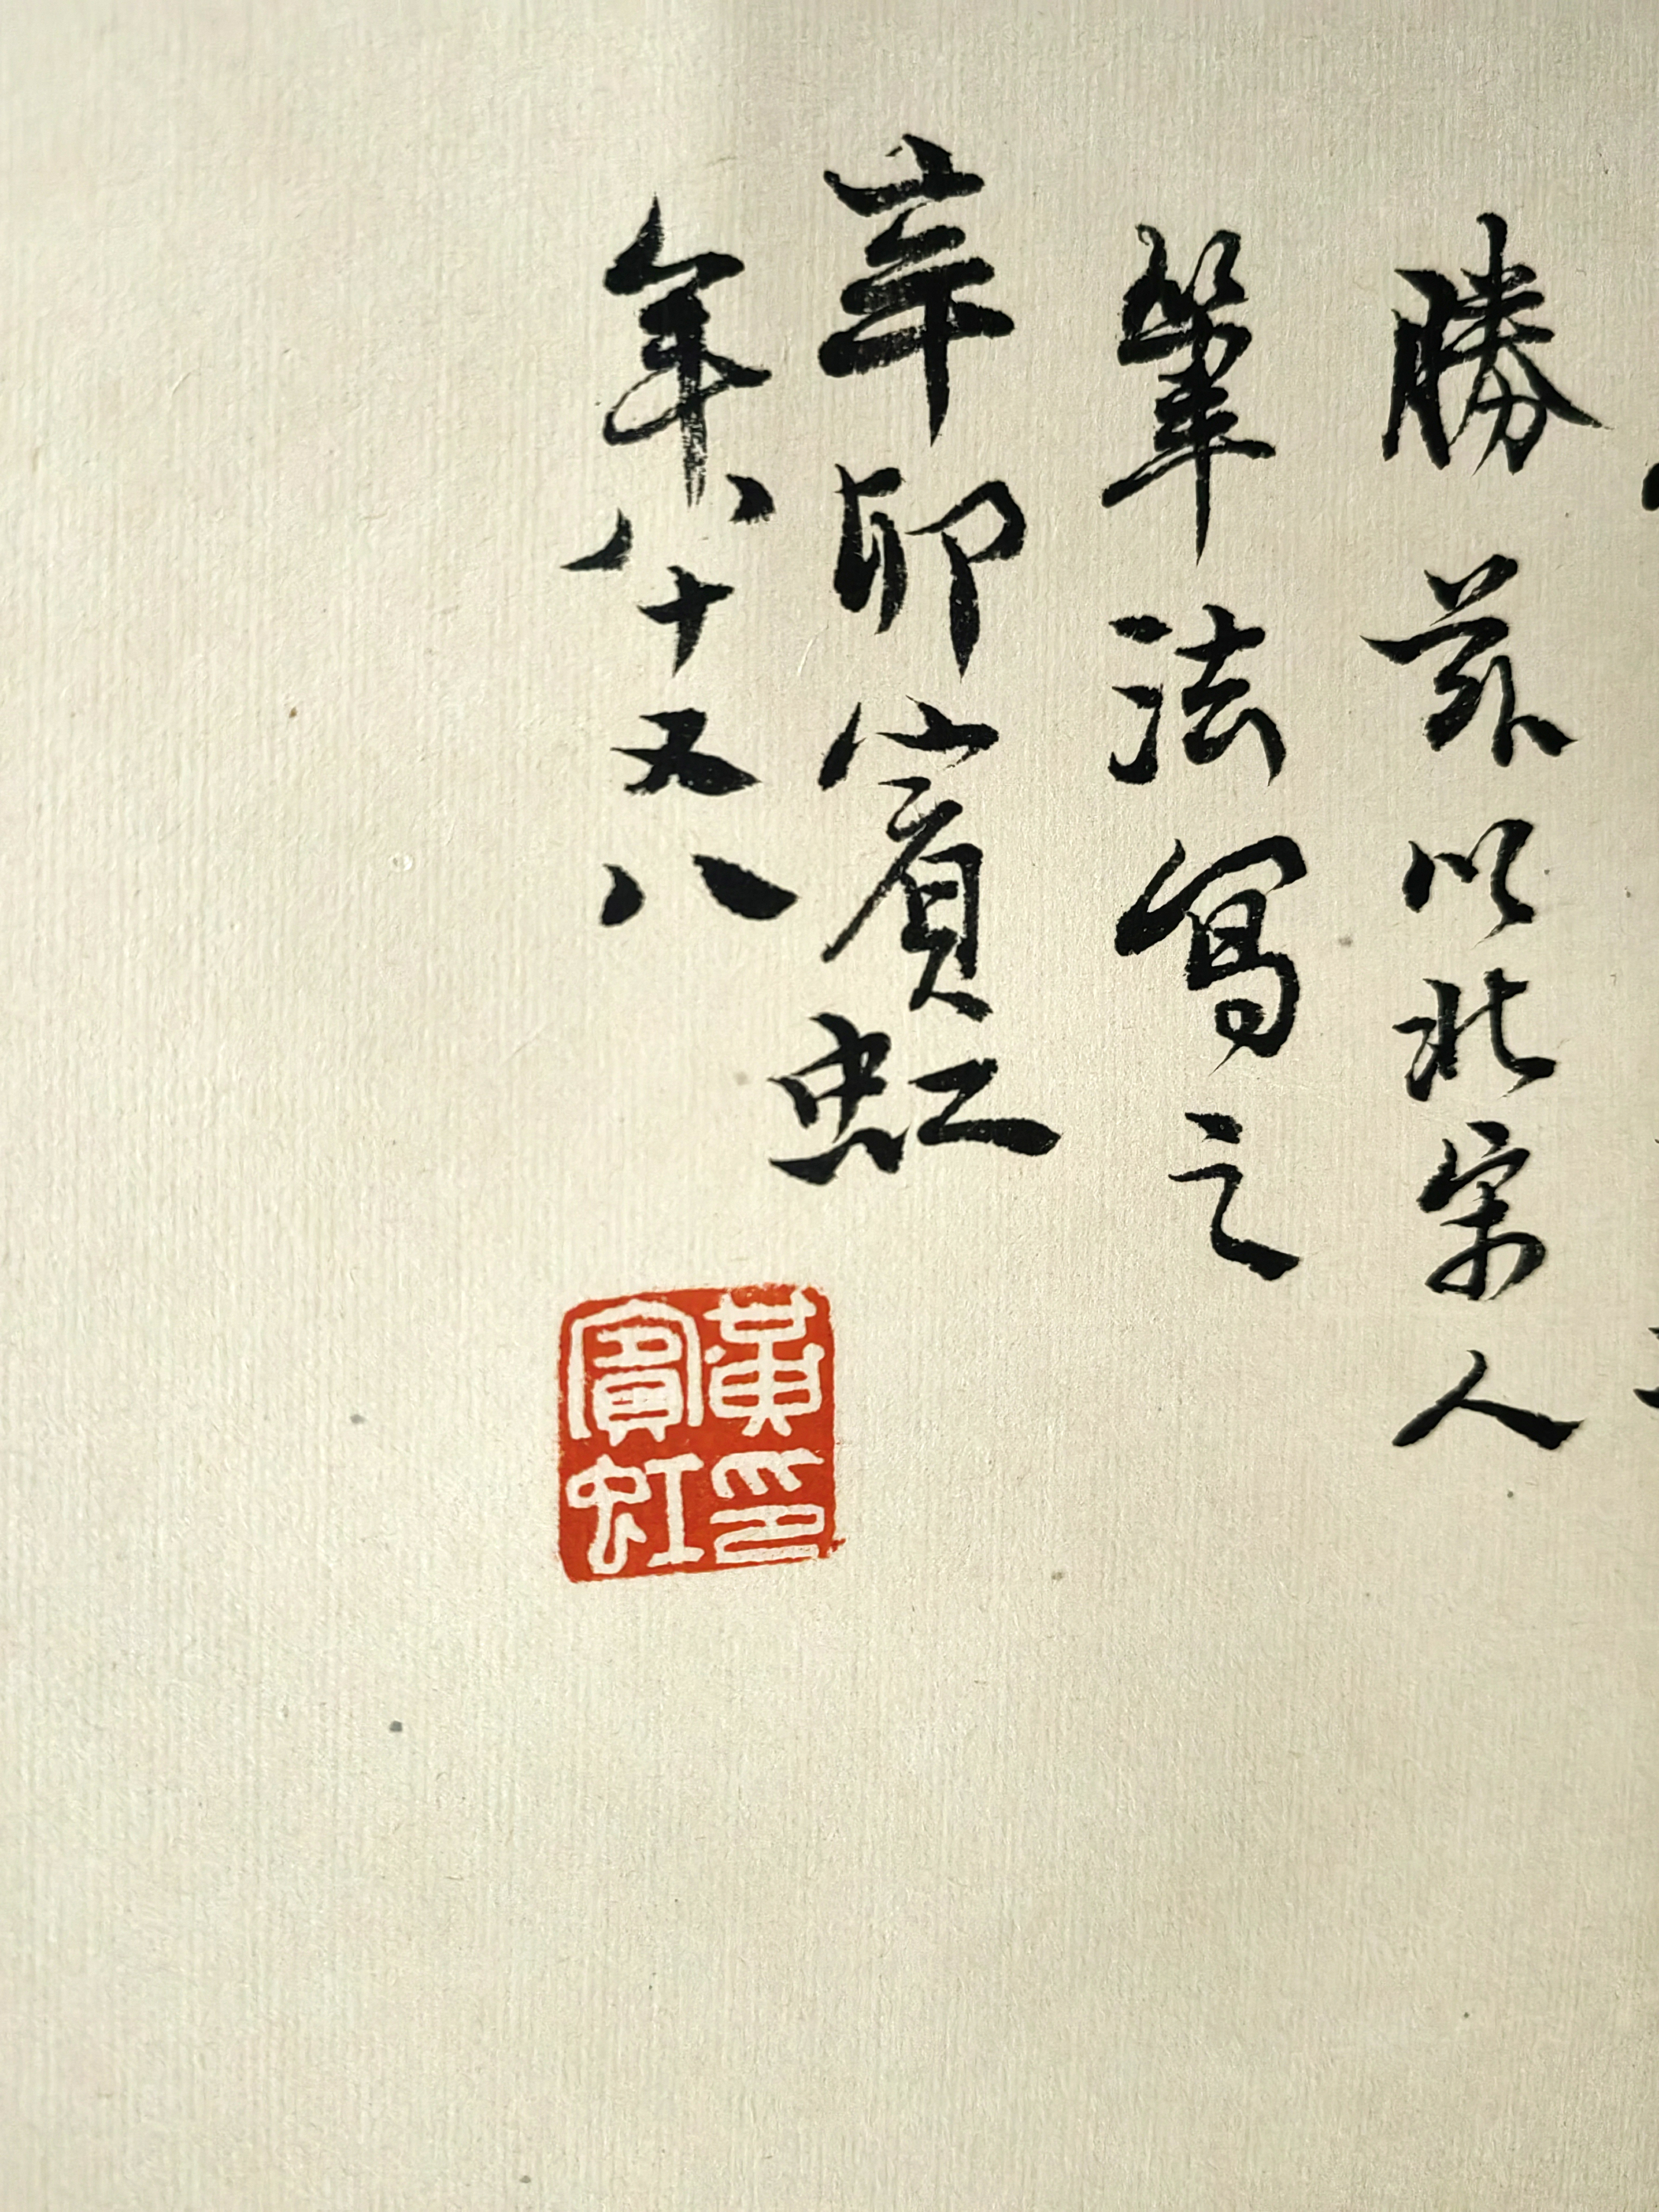 勝茲以北宋人
筆法寫之
辛卯賓虹
年八十又八
黃賓虹印